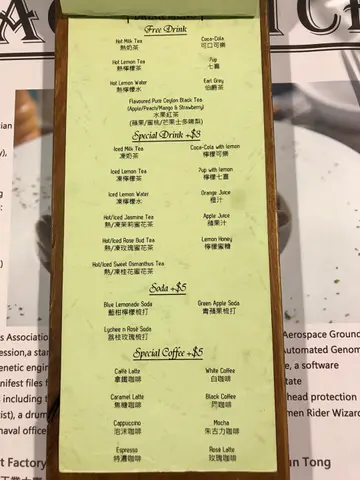 Free Drink
Hot Milk Tea
熱奶茶
Coca-Cola
可口可樂
Hot Lemon Tea
熱檸檬茶
7up
七喜
Hot Lemon Water
熱檸檬水
Earl Grey
伯爵茶
Flavoured Pure Ceylon Black Tea
(Apple/Peach/Mango & Strawberry)
水果紅茶
(蘋果/蜜桃/芒果士多啤梨)
Special Drink +$3
Iced Milk Tea
凍奶茶
Coca-Cola with lemon
檸檬可樂
Iced Lemon Tea
凍檸檬茶
7up with lemon
檸檬七喜
Iced Lemon Water
凍檸檬水
Orange Juice
橙汁
Hot/Iced Jasmine Tea
熱/凍茉莉蜜花茶
Apple Juice
蘋果汁
Hot/Iced Rose Bud Tea
熱/凍玫瑰蜜花茶
Lemon Honey
檸檬蜜糖
Hot/Iced Sweet Osmanthus Tea
熱/凍桂花蜜花茶
Soda +$5
Blue Lemonade Soda
藍柑檸檬梳打
Green Apple Soda
青蘋果梳打
Lychee n Rosé Soda
荔枝玫瑰梳打
Special Coffee +$5
Caffè Latte
拿鐵咖啡
White Coffee
白咖啡
Caramel Latte
焦糖咖啡
Black Coffee
咖啡
Cappuccino
泡沫咖啡
Mocha
朱古力咖啡
Espresso
特濃咖啡
Rosé Latte
玫瑰咖啡
s Association
ession, a star
enetic engine
nifest files f
s including t
ist), a drum
naval office
t Factory
Aerospace Ground
Automated Genom
e, a software
tate
head protection
men Rider Wizard
un Tong